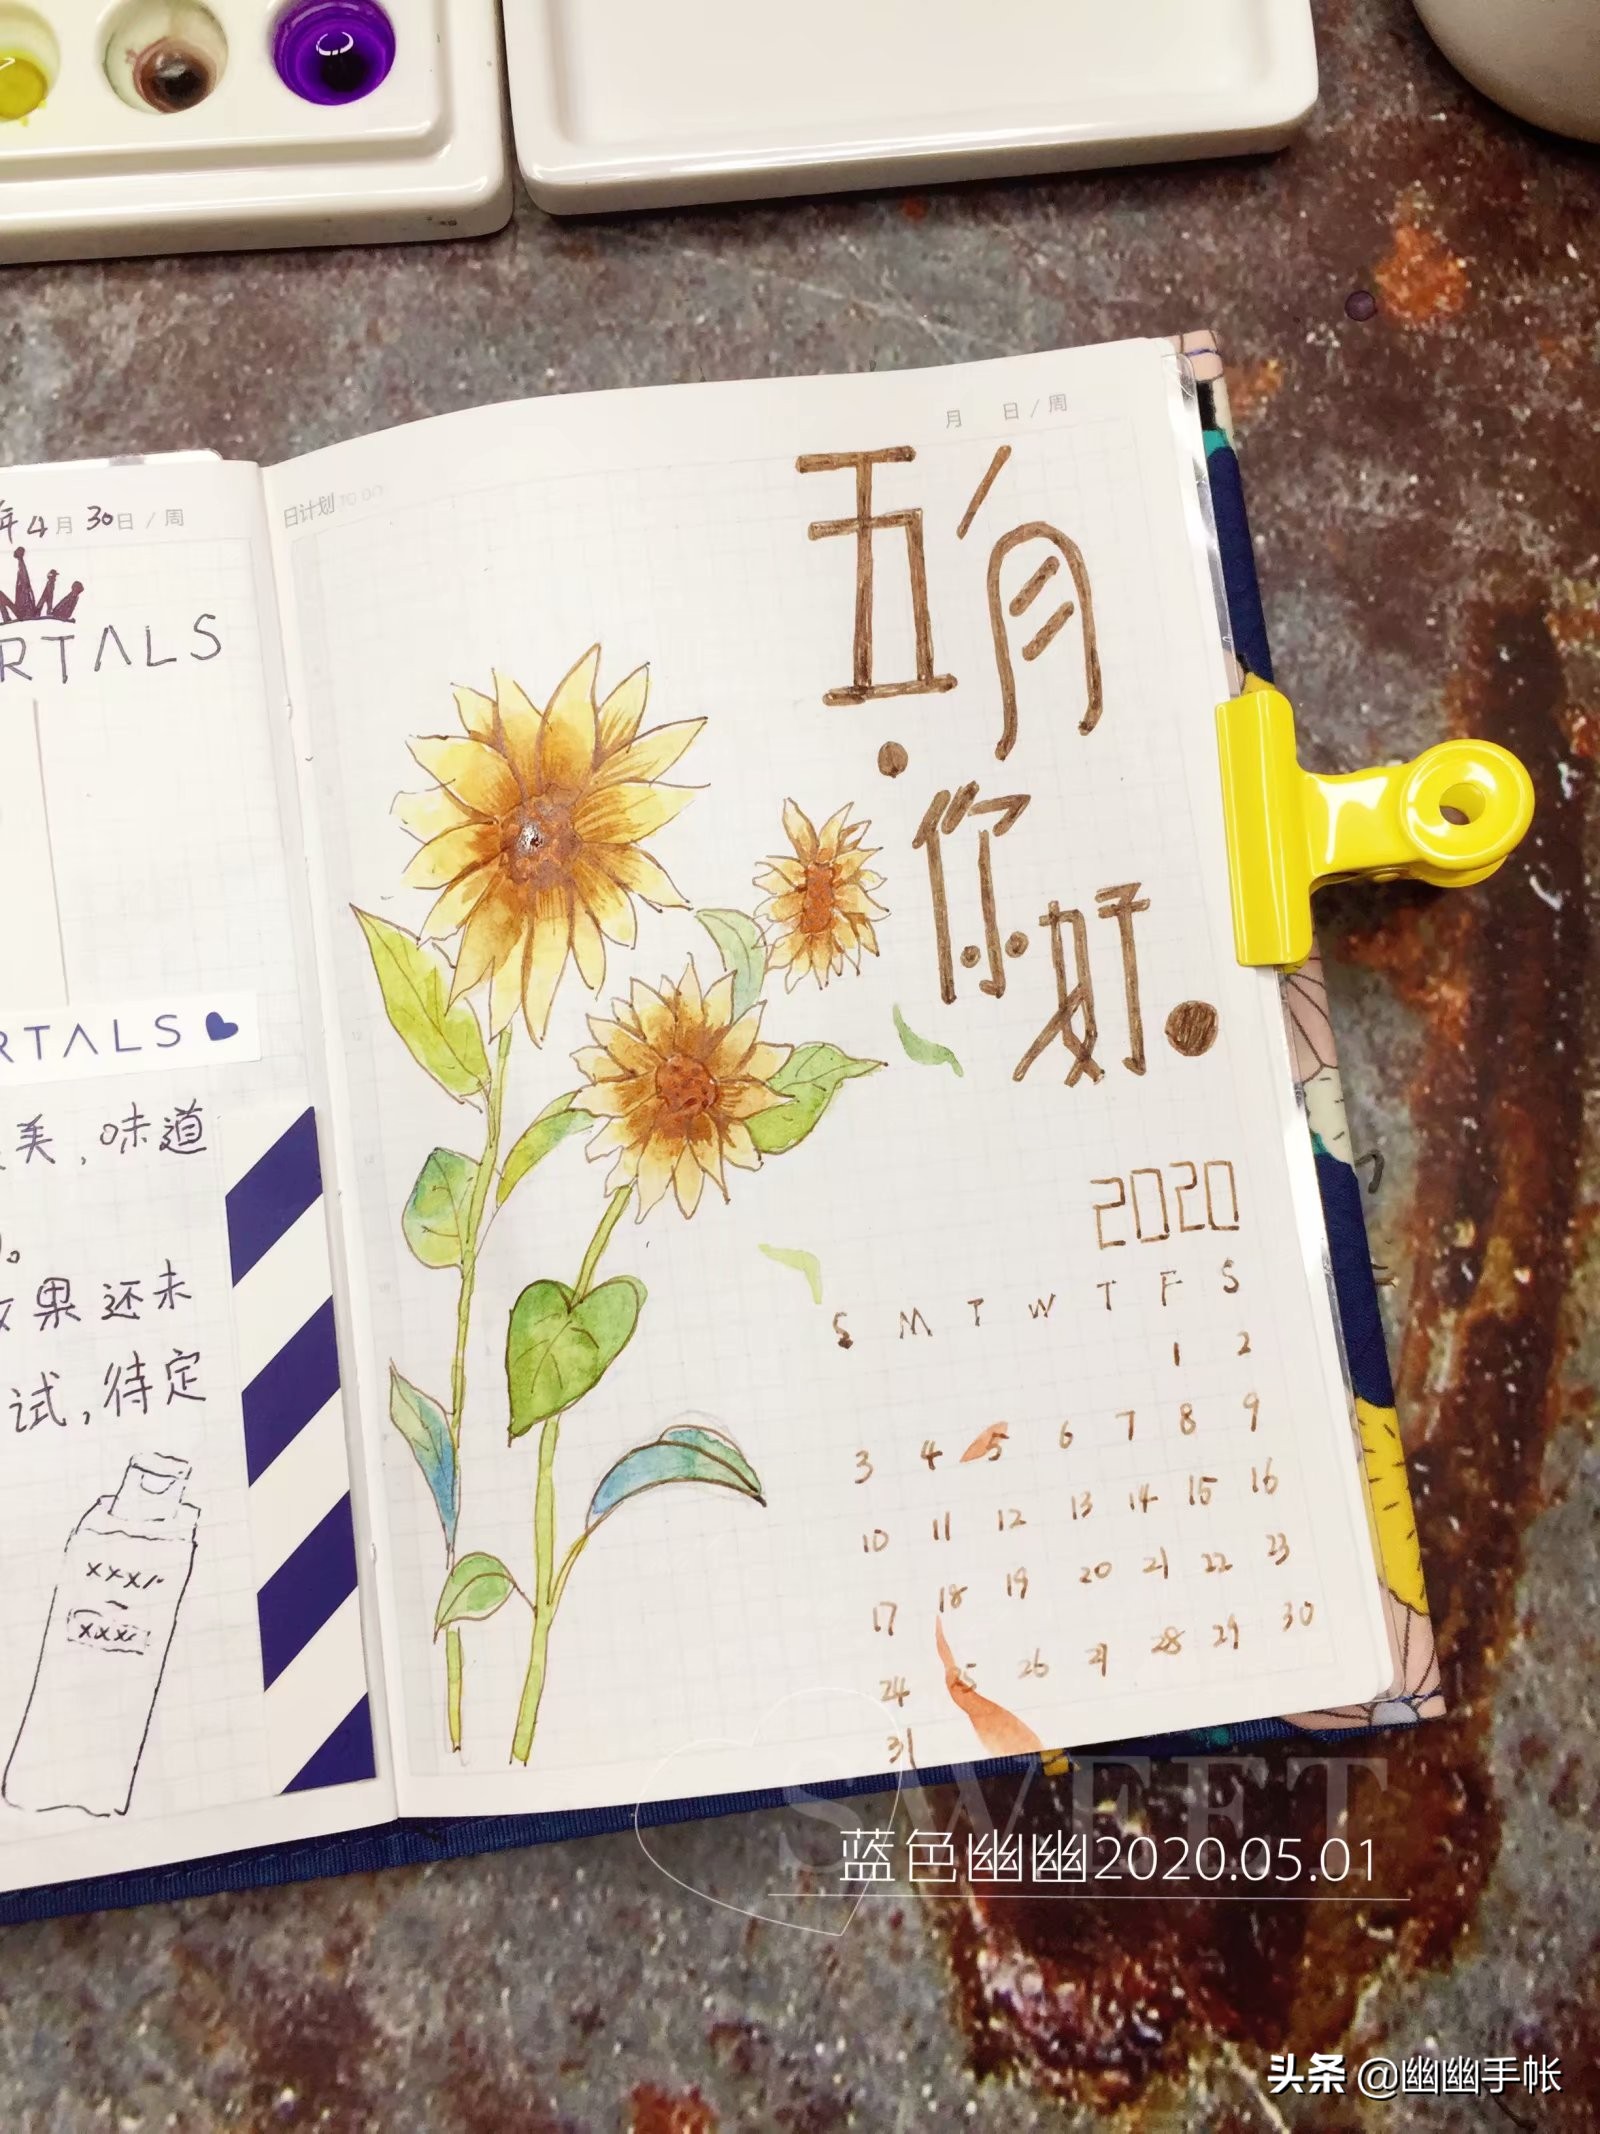 年4月30日/周
RTALS
RTALS
美，味道
果还未
试，待定
xxxx
xxxx
日计划 TO DO
月 日/周
五月
你好
2020
S M T W T F S
1 2
3 4 5 6 7 8 9
10 11 12 13 14 15 16
17 18 19 20 21 22 23
24 25 26 27 28 29 30
31
SWEET
蓝色幽幽2020.05.01
头条 @幽幽手帐